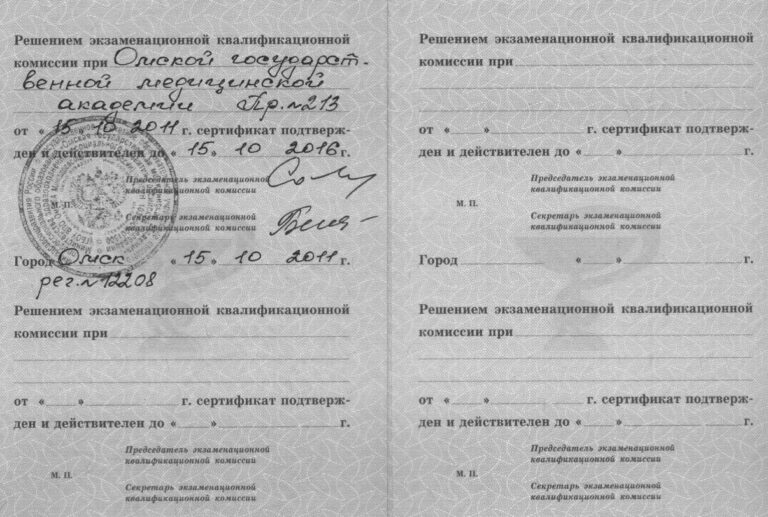 Решением экзаменационной квалификационной
комиссии при Омской государст-
венной медицинской
академии Пр.№213
от «15» 10 2011 г. сертификат подтверж-
ден и действителен до «15» 10 2016 г.
Председатель экзаменационной
квалификационной комиссии
М. П.
Секретарь экзаменационной
квалификационной комиссии
Город Омск «15» 10 2011 г.
рег.№12208
Решением экзаменационной квалификационной
комиссии при
от « » г. сертификат подтверж-
ден и действителен до « » г.
Председатель экзаменационной
квалификационной комиссии
М. П.
Секретарь экзаменационной
квалификационной комиссии
Решением экзаменационной квалификационной
комиссии при
от « » г. сертификат подтверж-
ден и действителен до « » г.
Председатель экзаменационной
квалификационной комиссии
М. П.
Секретарь экзаменационной
квалификационной комиссии
Город « » г.
Решением экзаменационной квалификационной
комиссии при
от « » г. сертификат подтверж-
ден и действителен до « » г.
Председатель экзаменационной
квалификационной комиссии
М. П.
Секретарь экзаменационной
квалификационной комиссии